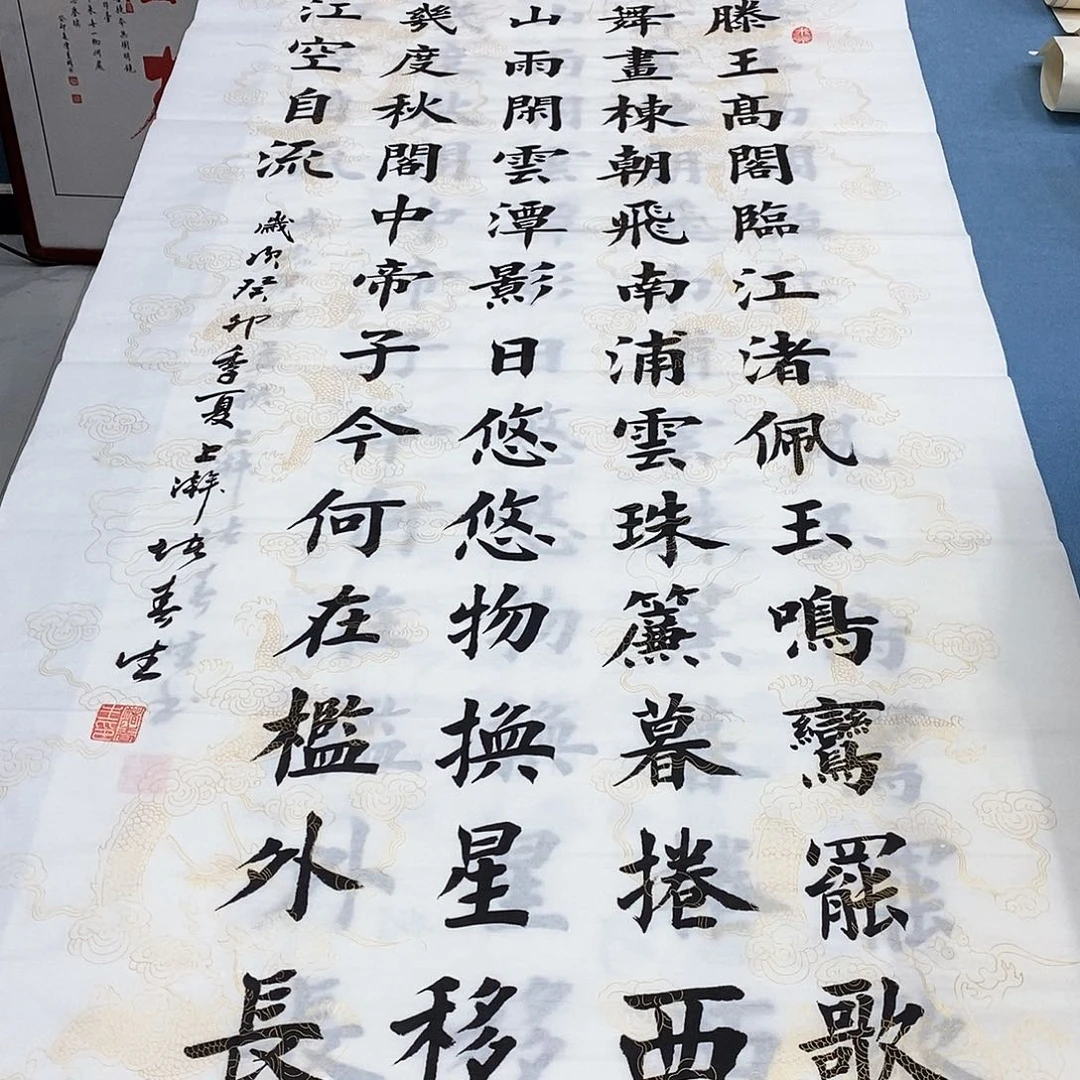 滕王髙閣臨江渚佩玉鳴鸞罷歌
舞畫棟朝飛南浦雲珠簾暮捲西
山雨閑雲潭影日悠悠物換星移
幾度秋閣中帝子今何在檻外長
江空自流
歲次癸卯季夏上澣春生